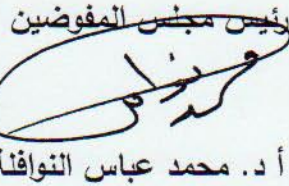 رئيس مجلس المفوضين
أ د. محمد عباس النوافلة